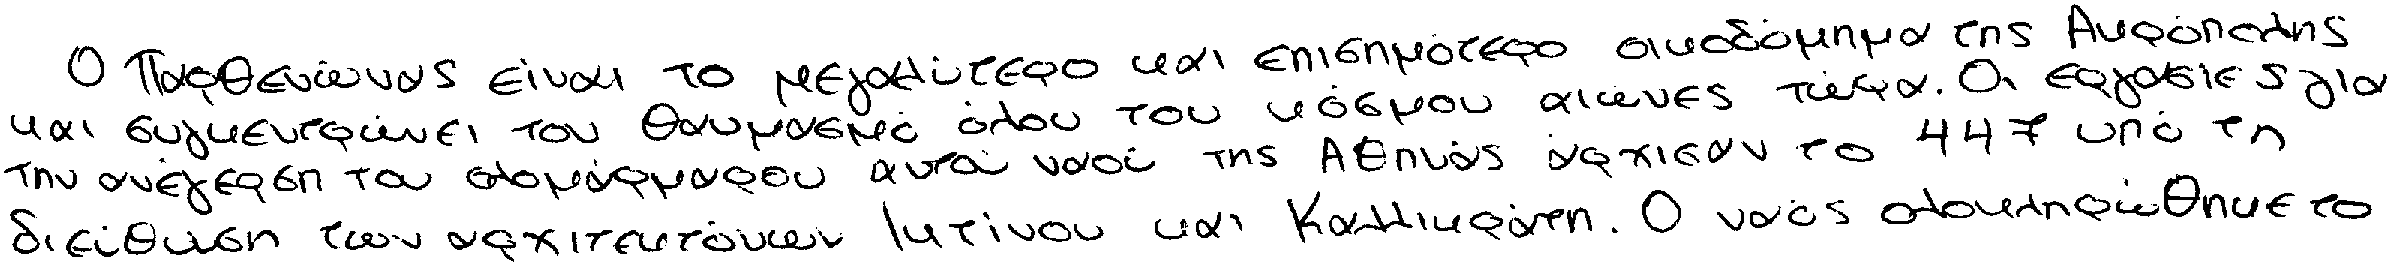 Ο Παρθενώνας είναι το μεγαλύτερο και επισημότερο οικοδόμημα της Ακρόπολης
και συγκεντρώνει τον θαυμασμό όλου του κόσμου αιώνες τώρα. Οι εργασίες για
την ανέγερση του ολομάρμαρου αυτού ναού της Αθηνάς άρχισαν το 447 υπό τη
διεύθυνση των αρχιτεκτόνων Ικτίνου και Καλλικράτη. Ο ναός ολοκληρώθηκε το